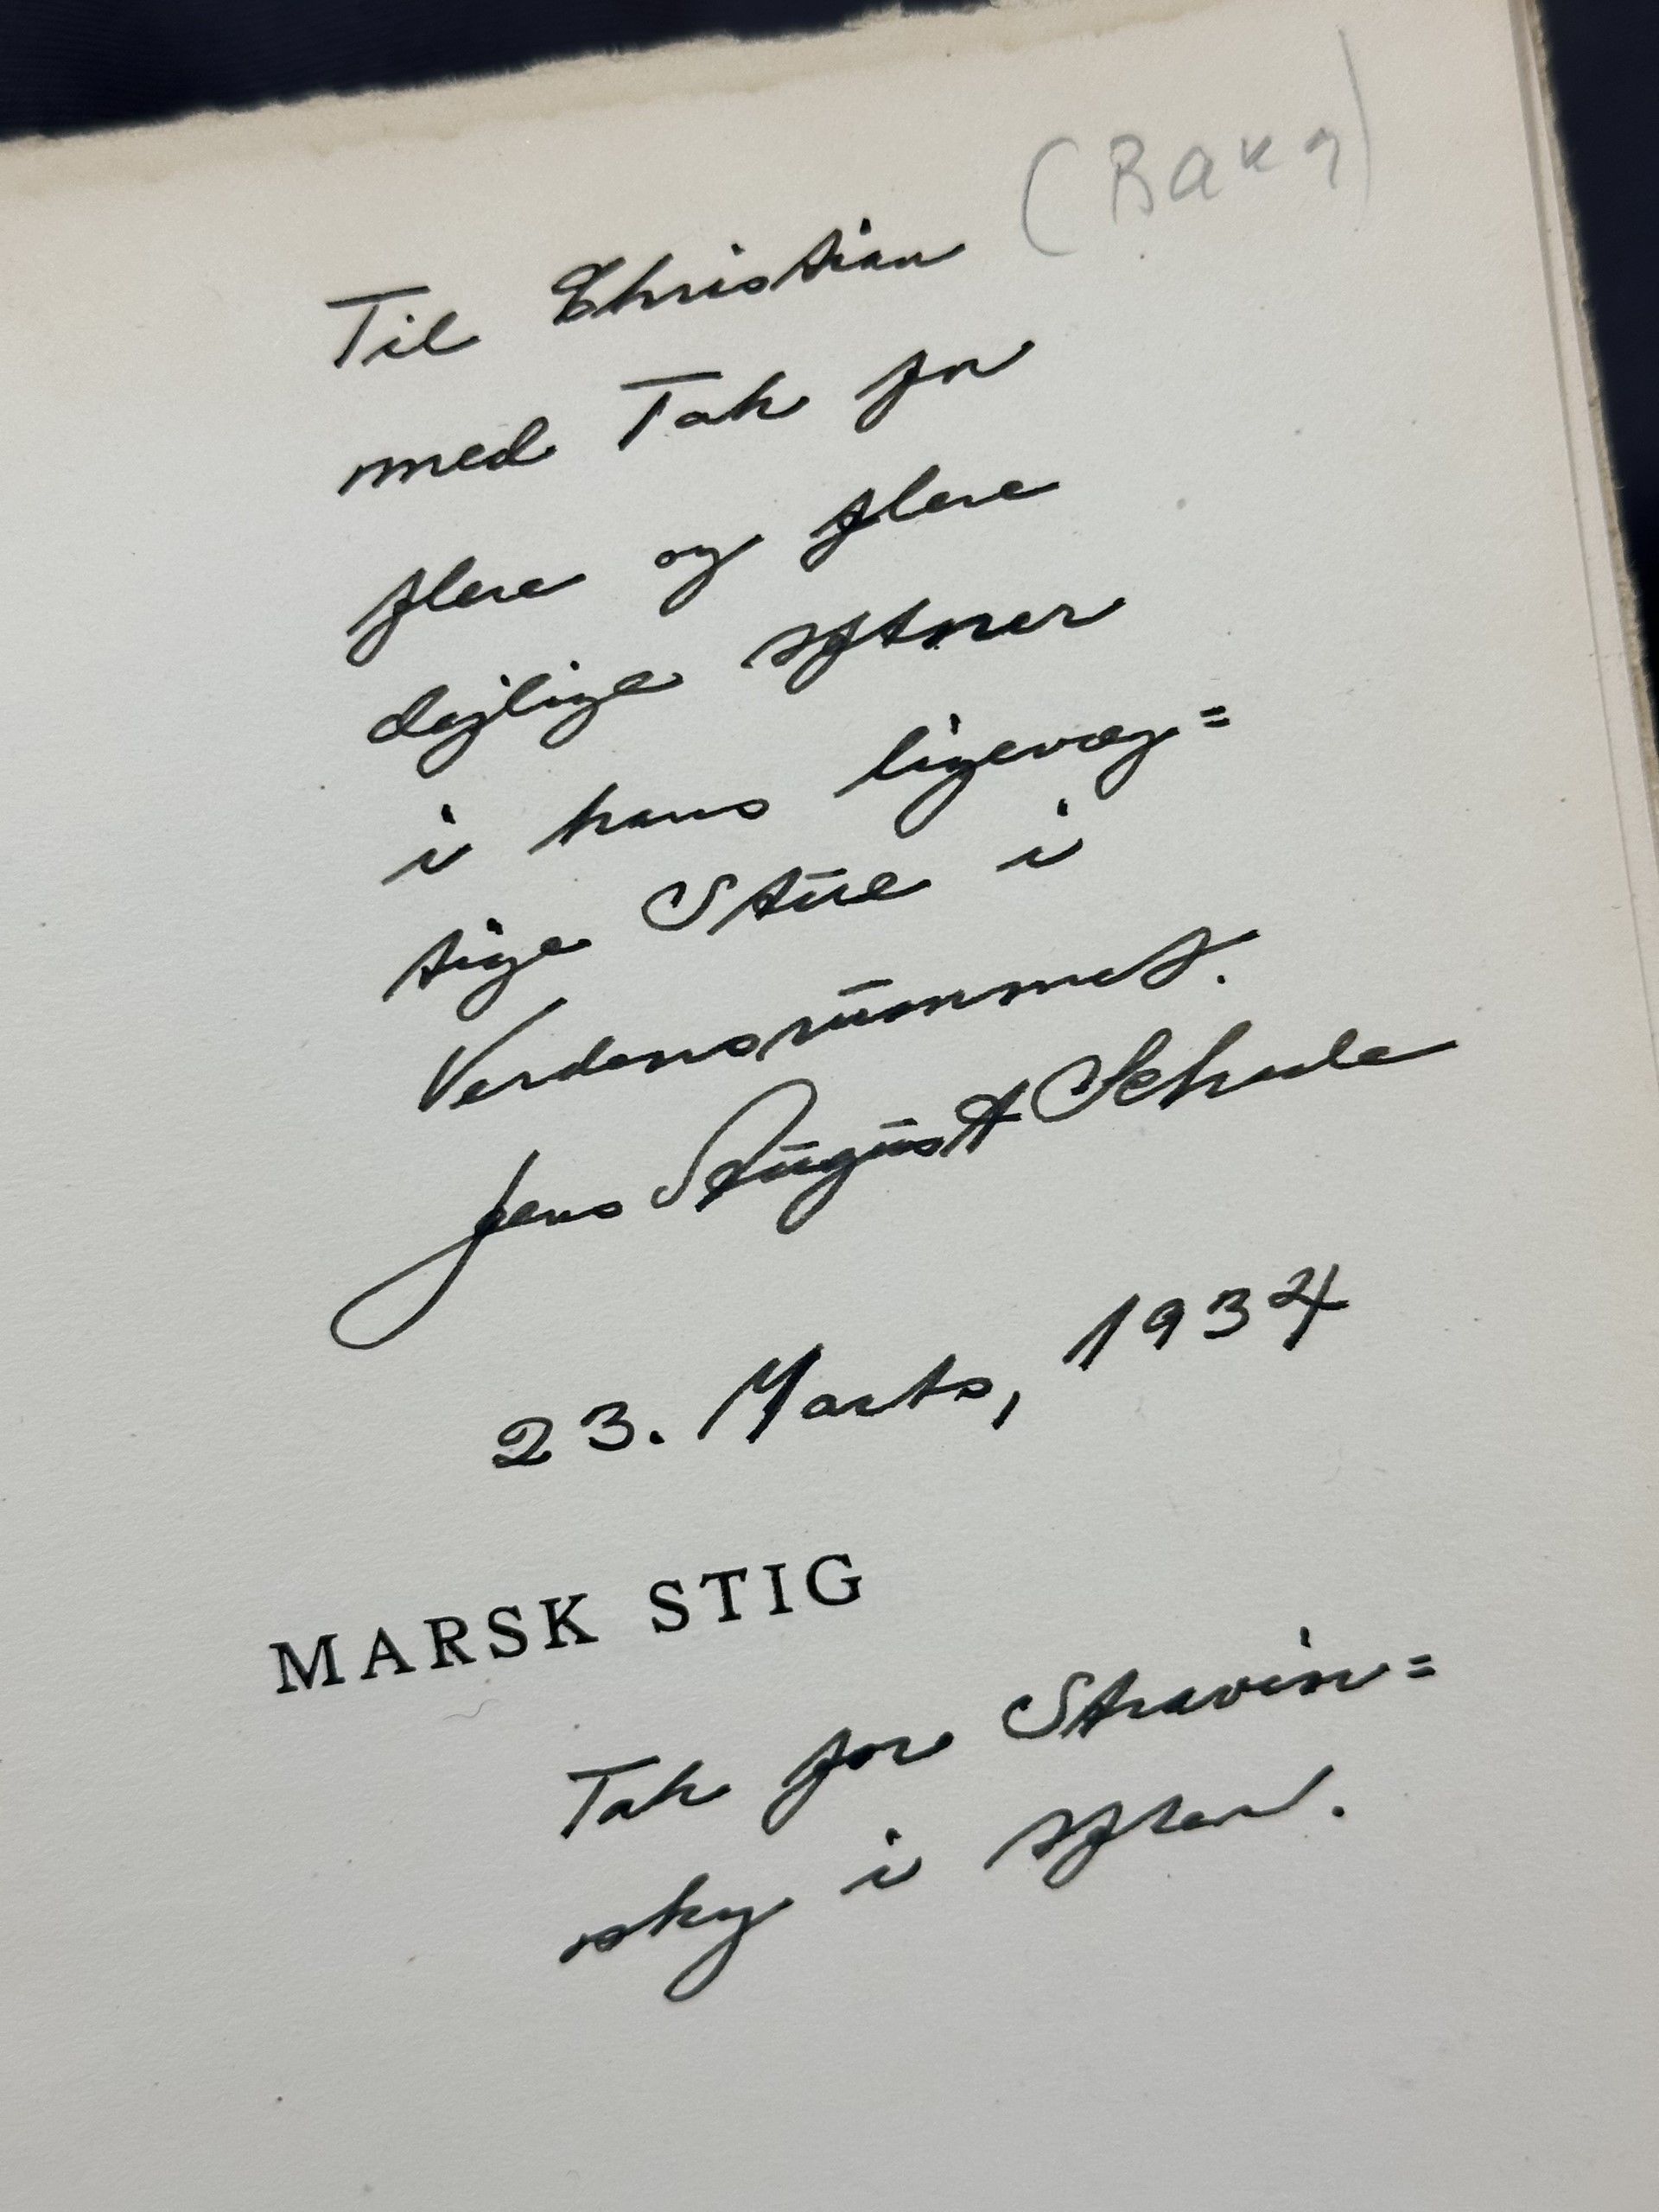 Til Christian
med Tak for
flere og flere
dejlige Aftner
i hans ligevæg=
tige Stue i
Verdensrummet.
Jens August Schade
23. Marts, 1934
MARSK STIG
Tak for Stravin=
sky i Aften.